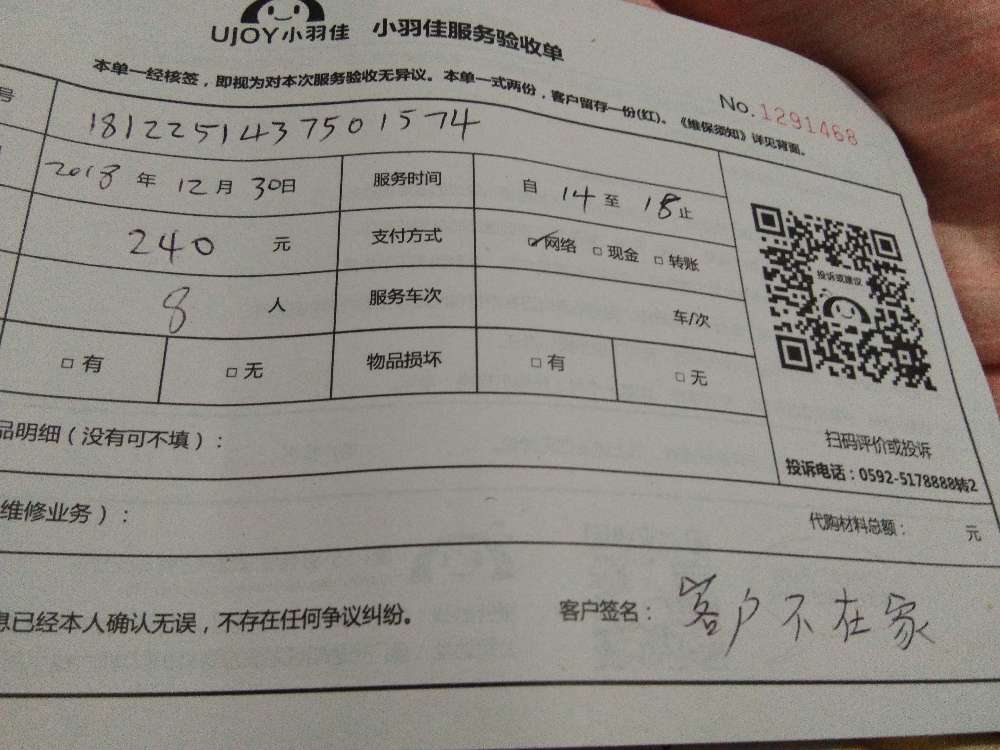 UJOY小羽佳 小羽佳服务验收单
本单一经核签，即视为对本次服务验收无异议。本单一式两份，客户留存一份(红)。《维保须知》详见背面。
No.1291468
号 181225143750 1574
2018 年 12 月 30 日 服务时间 自 14 至 18 止
240 元 支付方式 ☑网络 □现金 □转账
8 人 服务车次 车/次
□ 有 □ 无 物品损坏 □ 有 □ 无
投诉或建议
扫码评价或投诉
投诉电话：0592-5178888转2
品明细（没有可不填）：
维修业务）： 代购材料总额： 元
息已经本人确认无误，不存在任何争议纠纷。 客户签名： 客户不在家